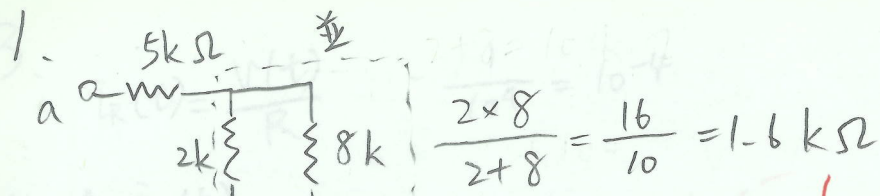 1.
5kΩ 並
a
2k 8k
2×8/2+8 = 16/10 = 1.6 kΩ